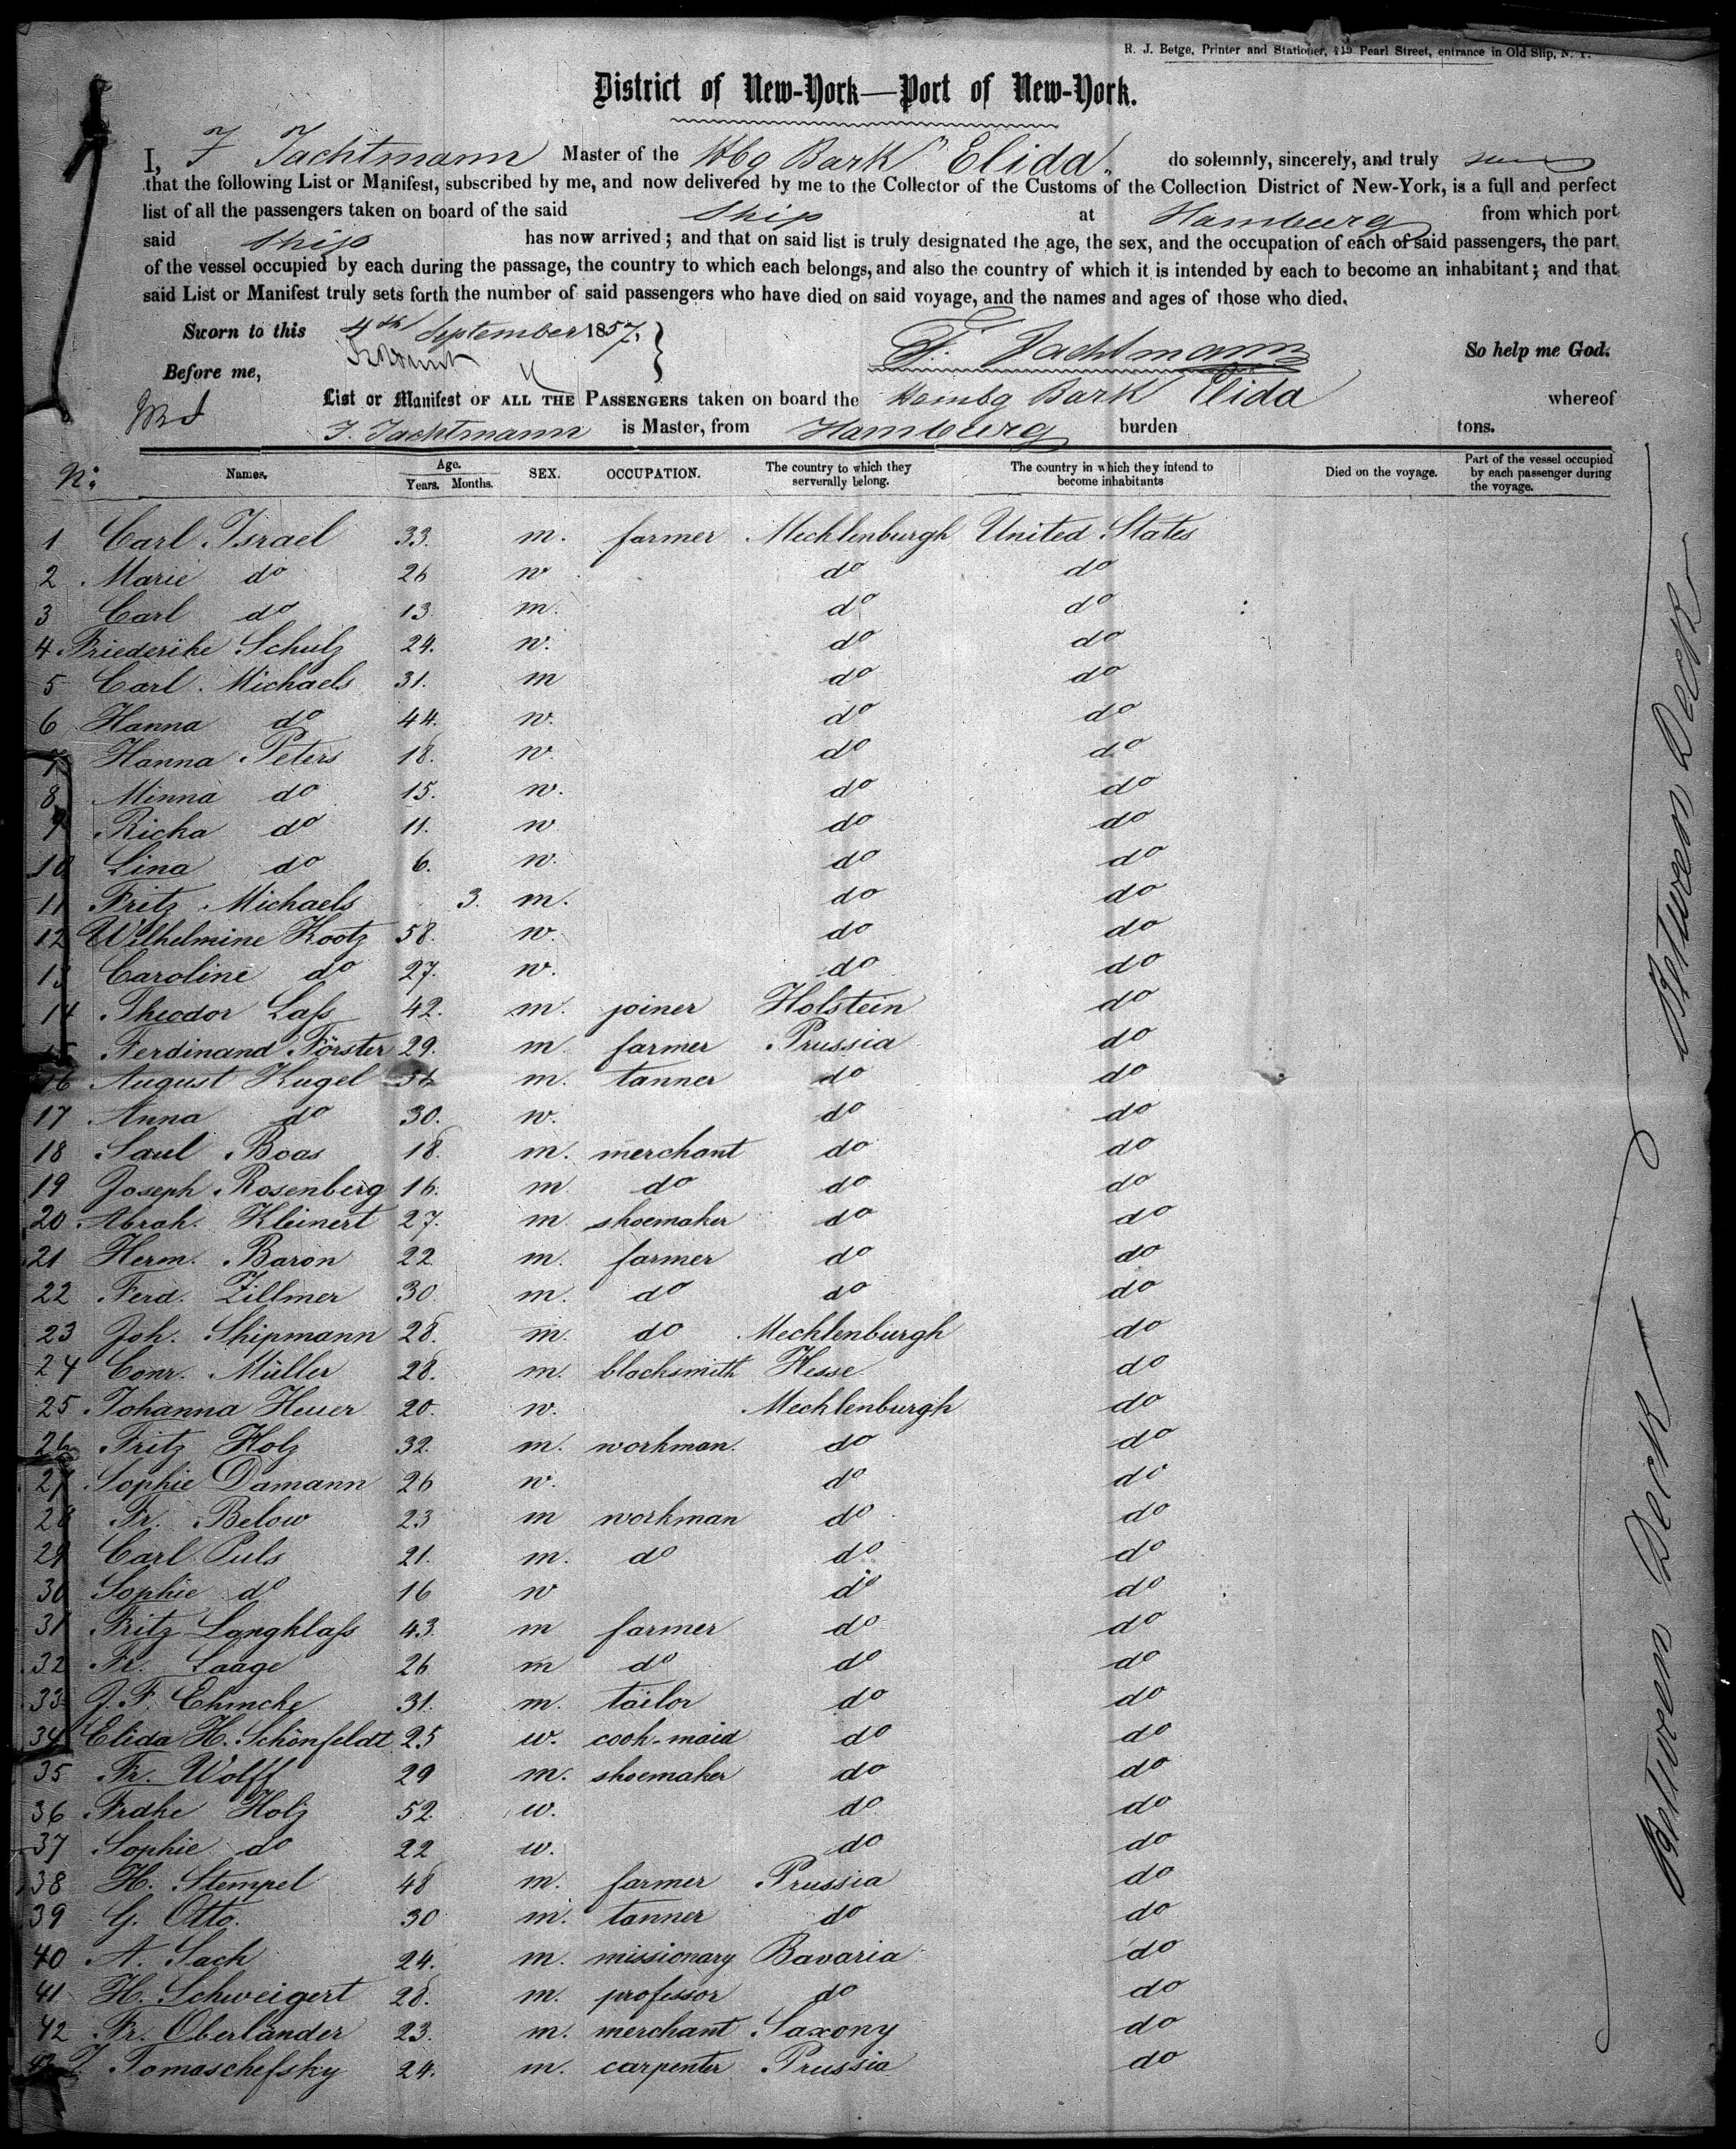 R. J. Betge, Printer and Stationer, 219 Pearl Street, entrance in Old Slip, N. Y.
District of New-York—Port of New-York.
I, F Jachtmann Master of the Hbg Bark "Elida" do solemnly, sincerely, and truly
that the following List or Manifest, subscribed by me, and now delivered by me to the Collector of the Customs of the Collection District of New-York, is a full and perfect
list of all the passengers taken on board of the said Ship at Hamburg from which port
said Ship has now arrived; and that on said list is truly designated the age, the sex, and the occupation of each of said passengers, the part
of the vessel occupied by each during the passage, the country to which each belongs, and also the country of which it is intended by each to become an inhabitant; and that
said List or Manifest truly sets forth the number of said passengers who have died on said voyage, and the names and ages of those who died.
Sworn to this 4th September 1857. F. Jachtmann So help me God.
Before me,
List or Manifest OF ALL THE PASSENGERS taken on board the Hambg Bark Elida whereof
F. Jachtmann is Master, from Hamburg burden tons.
No: Names. Age. Years. Months. SEX. OCCUPATION. The country to which they serverally belong. The country in which they intend to become inhabitants Died on the voyage. Part of the vessel occupied by each passenger during the voyage.
1 Carl Israel 33. m. farmer Mecklenburgh United States
2 Marie do 26 w do do
3 Carl do 13. m. do do
4 Friederike Schulz 24. w. do do
5 Carl Michaels 31. m do do
6 Hanna do 44. w. do do
7 Hanna Peters 18. w. do do
8 Minna do 15. w. do do
9 Richa do 11. w do do
10 Lina do 6. w. do do
11 Fritz Michaels 3. m. do do
12 Wilhelmine Kootz 58. w. do do
13 Caroline do 27. w. do do
14 Theodor Laſs 42. m. joiner Holstein do
15 Ferdinand Förster 29. m farmer Prussia do
16 August Kugel m. tanner do do
17 Anna do 30. w. do do
18 Saul Boas 18. m. merchant do do
19 Joseph Rosenberg 16. m do do do
20 Abrah. Kleinert 27. m. shoemaker do do
21 Herm. Baron 22 m. farmer do do
22 Ferd. Zillmer 30. m. do do do
23 Joh. Shipmann 28. m. do Mecklenburgh do
24 Conr. Müller 28. m. blacksmith Hesse do
25 Johanna Heuer 20. w. Mecklenburgh do
26 Fritz Holz 32. m. workman. do do
27 Sophie Damann 26 w. do do
28 Fr. Below 23 m workman do do
29 Carl Puls 21. m. do do do
30 Sophie do 16 w do do
31 Fritz Langklaſs 43. m farmer do do
32 Fr. Laage 26 m do do do
33 J. F. Ehmcke 31. m. tailor do do
34 Elida H. Schönfeldt 25 w. cook-maid do do
35 Fr. Wolff 29 m. shoemaker do do
36 Frdke Holz 52. w. do do
37 Sophie do 22 w. do do
38 H. Stempel 48 m. farmer Prussia do
39 G. Otto. 30 m. tanner do do
40 A. Sach 24. m. missionary Bavaria do
41 H. Schweigert 28. m. professor do do
42 Fr. Oberländer 23. m. merchant Saxony do
43 J. Tomaschefsky 24. m. carpenter Prussia do
Between Deck
Between Deck